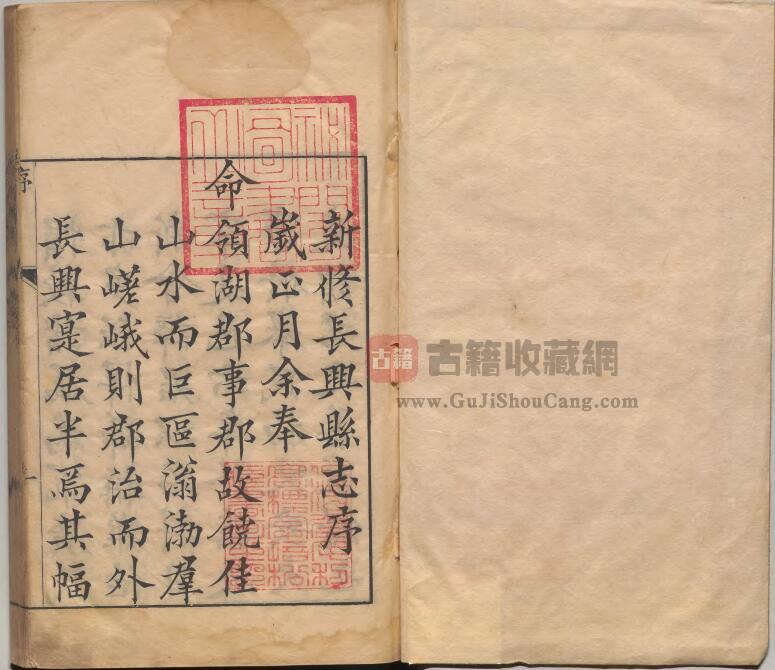 新修長興縣志序
歲正月余奉
命領湖郡事郡故饒佳
山水而巨區滃渤羣
山嵯峨則郡治而外
長興寔居半焉其幅
序
古籍
古籍收藏網
www.GuJiShouCang.com